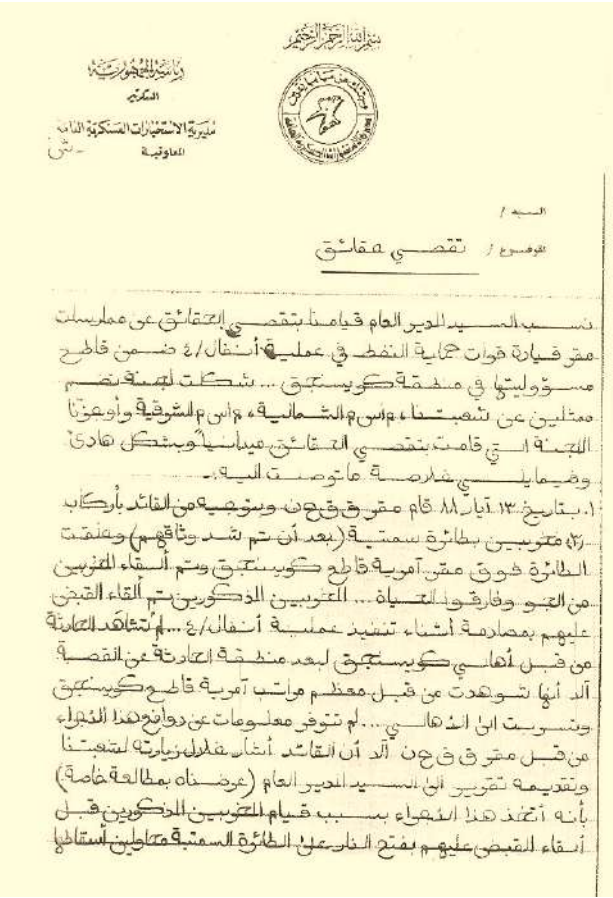 بسم الله الرحمن الرحيم
رئاسة الجمهورية
السكرتير
مديرية الاستخبارات العسكرية العامة
المعاونية
السيد /
الموضوع / تقصي حقائق
نسب السيد المدير العام قيامنا بتقصي الحقائق عن ممارسات
مقر قيادة قوات حماية النفط في عملية أنفال/٤ ضمن قاطع
مسؤوليتها في منطقة كويسنجق ... شكلت لجنة تضم
ممثلين عن شعبتنا، م اس م الشمالية، م اس م الشرقية وأوعزنا
اللجنة التي قامت بتقصي الحقائق ميدانياً وبشكل هادئ
وفيما يلي خلاصة ما توصلت اليه :-
١. بتاريخ ١٣ آيار ٨٨ قام مقر ق ق ح ن وبتوجيه من القائد بأركاب
(٣) مخربين بطائرة سمتية (بعد أن تم شد وثاقهم) وحلقت
الطائرة فوق مقر آمرية قاطع كويسنجق وتم ألقاء المخربين
من الجو وفارقوا الحياة ... المخربين المذكورين تم ألقاء القبض
عليهم بمصادمة أثناء تنفيذ عملية أنفال/٤ ... لم تشاهد الحادثة
من قبل أهالي كويسنجق لبعد منطقة الحادثة عن القصبة
ألا أنها شوهدت من قبل معظم مراتب آمرية قاطع كويسنجق
وتسربت الى الأهالي ... لم تتوفر معلومات عن دوافع هذا الأجراء
من قبل مقر ق ق ح ن ألا أن القائد أشار خلال زيارته لشعبتنا
وتقديمه تقرير الى السيد المدير العام (عرضناه بمطالعة خاصة)
بأنه أتخذ هذا الأجراء بسبب قيام المخربين المذكورين قبل
ألقاء القبض عليهم بفتح النار على الطائرة السمتية محاولين أسقاطها